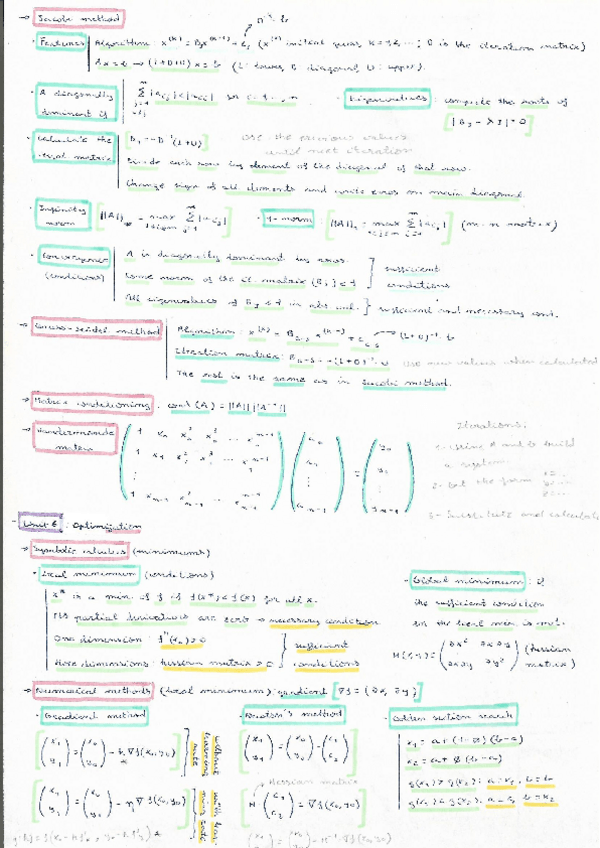 → Jacobi method
D⁻¹·b
· Features | Algorithm: x^(k) = B_J x^(k-1) + c_J (x^(0) initial guess, k = 1, 2, ...; B is the iteration matrix)
Ax = b → (L+D+U) x = b (L: lower, D: diagonal, U: upper).
· A diagonally dominant if | Σ |a_ij| < |a_ii| for i = 1, ..., n
· Eigenvalues: compute the roots of |B_J - λI| = 0
· Calculate the matrix | B_J = -D⁻¹(L+U) Use the previous values until next iteration
Divide each row by element of the diagonal of that row.
Change sign of all elements and write zeros on main diagonal.
· Infinity norm ||A||∞ = max Σ |a_ij| · 1-norm ||A||₁ = max Σ |a_ij| (m · n matrix)
· Convergence (conditions) | A is diagonally dominant by rows.
Some norm of the it. matrix (B_J) < 1 } sufficient conditions
All eigenvalues of B_J < 1 in abs. val. } sufficient and necessary cond.
→ Gauss-Seidel method | Algorithm: x^(k) = B_G-S x^(k-1) + c_G-S → (L+D)⁻¹·b
Iteration matrix: B_G-S = -(L+D)⁻¹·U Use new values when calculated
The rest is the same as in Jacobi method.
→ Matrix conditioning: cond(A) = ||A|| ||A⁻¹||
→ Vandermonde matrix
Iterations:
1- Using A and b build a system
2- Get the form
3- Substitute and calculate
- Unit 6: Optimization
→ Symbolic calculus (minimums)
· Local minimum (conditions)
x* is a min. of f if f(x*) < f(x) for all x.
All partial derivatives are zero → necessary condition
One dimension: f''(x₀) > 0
More dimensions: hessian matrix > 0 } sufficient conditions
· Global minimum: if the sufficient condition for the local min is met.
H(x,y) = (∂x² ∂x∂y ∂x∂y ∂y²) (hessian matrix)
→ Numerical methods (local minimum): gradient [∇f = (∂x, ∂y)]
· Gradient method
(x₁ y₁) = (x₀ y₀) - h ∇f(x₀,y₀)
(x₁ y₁) = (x₀ y₀) - η ∇f(x₀,y₀)
without learning rate
with learning rate
· Newton's method
(x₁ y₁) = (x₀ y₀) - (c₁ c₂)
Hessian matrix
H (c₁ c₂) = ∇f(x₀,y₀)
(x₁ y₁) = (x₀ y₀) - H⁻¹·∇f(x₀,y₀)
· Golden section search
x₁ = a + (1-Ø) (b-a)
x₂ = a + Ø (b-a)
g(x₁) > g(x₂): a = x₁, b = b
g(x₁) < g(x₂): a = a, b = x₂